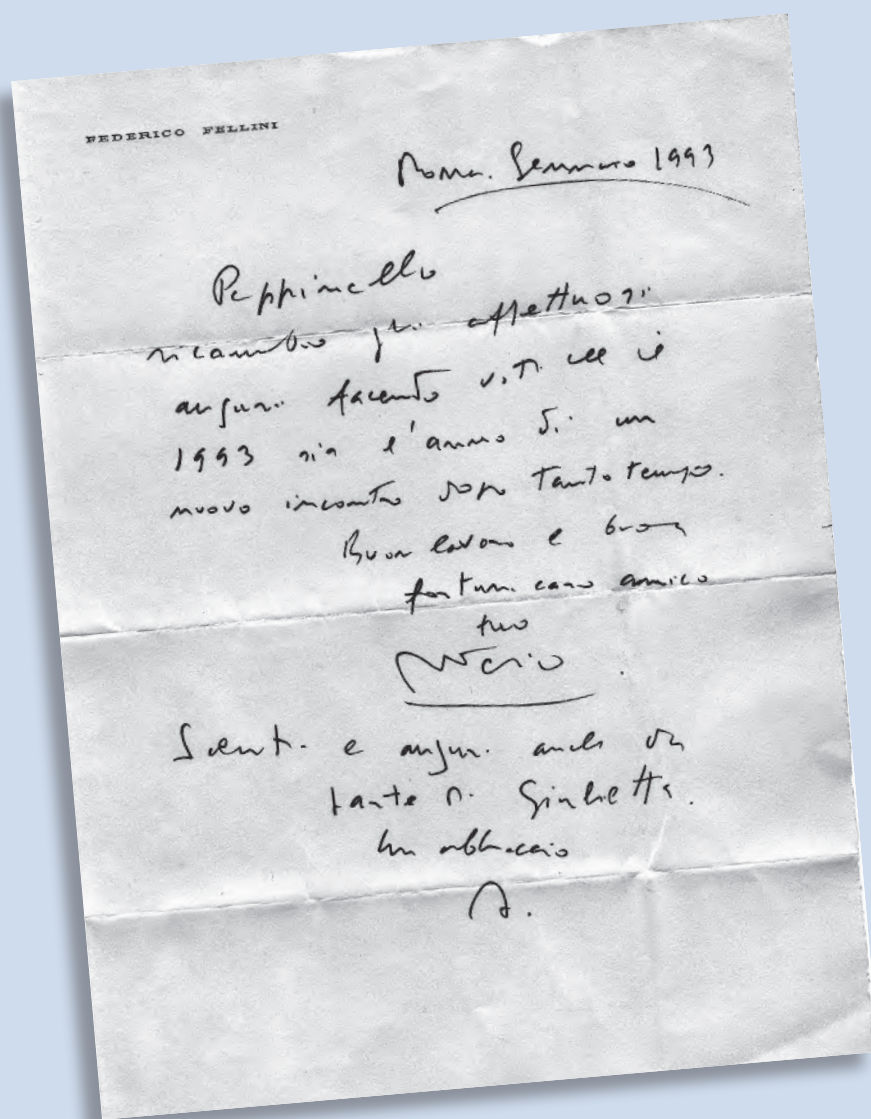 FEDERICO FELLINI
Roma. Gennaio 1993
Peppinello
ricambio gli affettuosi
auguri facendo voti che il
1993 sia l'anno di un
nuovo incontro dopo tanto tempo.
Buon lavoro e buona
fortuna caro amico
tuo
Saluti e auguri anche da
parte di Giulietta.
Un abbraccio